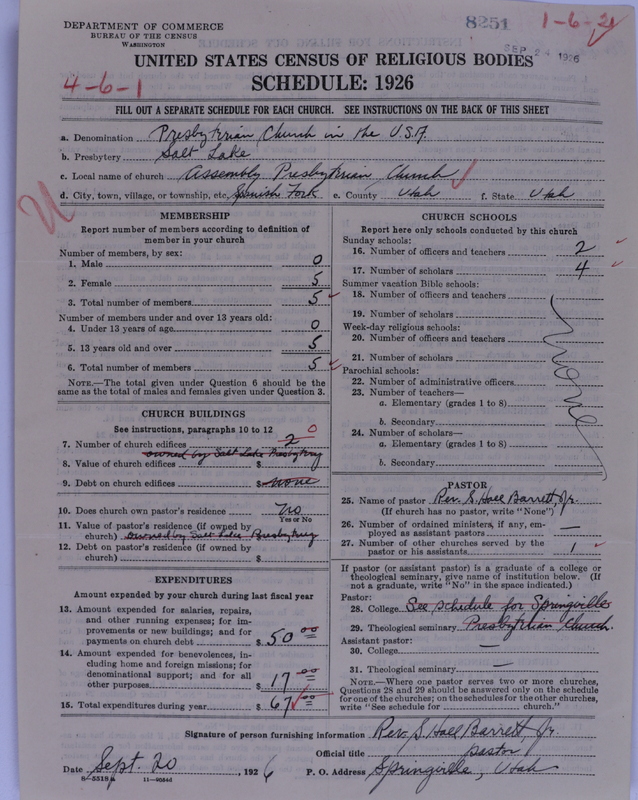 DEPARTMENT OF COMMERCE
BUREAU OF THE CENSUS
WASHINGTON
8251
1-6-21
SEP 24 1926
UNITED STATES CENSUS OF RELIGIOUS BODIES
4-6-1
SCHEDULE: 1926
FILL OUT A SEPARATE SCHEDULE FOR EACH CHURCH. SEE INSTRUCTIONS ON THE BACK OF THIS SHEET
a. Denomination Presbyterian Church in the U.S.A.
b. Presbytery Salt Lake
c. Local name of church Assembly Presbyterian Church
d. City, town, village, or township, etc. Spanish Fork e. County Utah f. State Utah
MEMBERSHIP
Report number of members according to definition of
member in your church
Number of members, by sex:
1. Male 0
2. Female 5
3. Total number of members 5
Number of members under and over 13 years old:
4. Under 13 years of age 0
5. 13 years old and over 5
6. Total number of members 5
NOTE.—The total given under Question 6 should be
same as the total of males and females given under Question 3.
CHURCH BUILDINGS
See instructions, paragraphs 10 to 12
7. Number of church edifices 2 0
owned by Salt Lake Presbytery
8. Value of church edifices $
9. Debt on church edifices $ none
10. Does church own pastor's residence? No
Yes or No
11. Value of pastor's residence (if owned by
church) owned by Salt Lake Presbytery
12. Debt on pastor's residence (if owned by
church) $
EXPENDITURES
Amount expended by your church during last fiscal year
13. Amount expended for salaries, repairs,
and other running expenses; for im-
provements or new buildings; and for
payments on church debt $ 50 00
14. Amount expended for benevolences, in-
cluding home and foreign missions; for
denominational support; and for all
other purposes $ 17 00
15. Total expenditures during year $ 67 00
CHURCH SCHOOLS
Report here only schools conducted by this church
Sunday schools:
16. Number of officers and teachers 2
17. Number of scholars 4
Summer vacation Bible schools:
18. Number of officers and teachers
19. Number of scholars
Week-day religious schools:
20. Number of officers and teachers
21. Number of scholars
Parochial schools:
22. Number of administrative officers
23. Number of teachers—
a. Elementary (grades 1 to 8)
b. Secondary
24. Number of scholars—
a. Elementary (grades 1 to 8)
b. Secondary
None
PASTOR
25. Name of pastor Rev. S. Hall Barrett Jr.
(If church has no pastor, write "None")
26. Number of ordained ministers, if any, em-
ployed as assistant pastors —
27. Number of other churches served by the
pastor or his assistants 1
If pastor (or assistant pastor) is a graduate of a college or
theological seminary, give name of institution below. (If
not a graduate, write "No" in the space indicated.)
Pastor:
28. College See schedule for Springville
29. Theological seminary Presbyterian Church.
Assistant pastor:
30. College —
31. Theological seminary —
NOTE.—Where one pastor serves two or more churches,
Questions 28 and 29 should be answered only on the schedule
for one of the churches; on the schedules for the other churches,
write "See schedule for church."
Signature of person furnishing information Rev. S. Hall Barrett Jr.
Official title pastor
Date Sept. 20, 1926 P. O. Address Springville, Utah